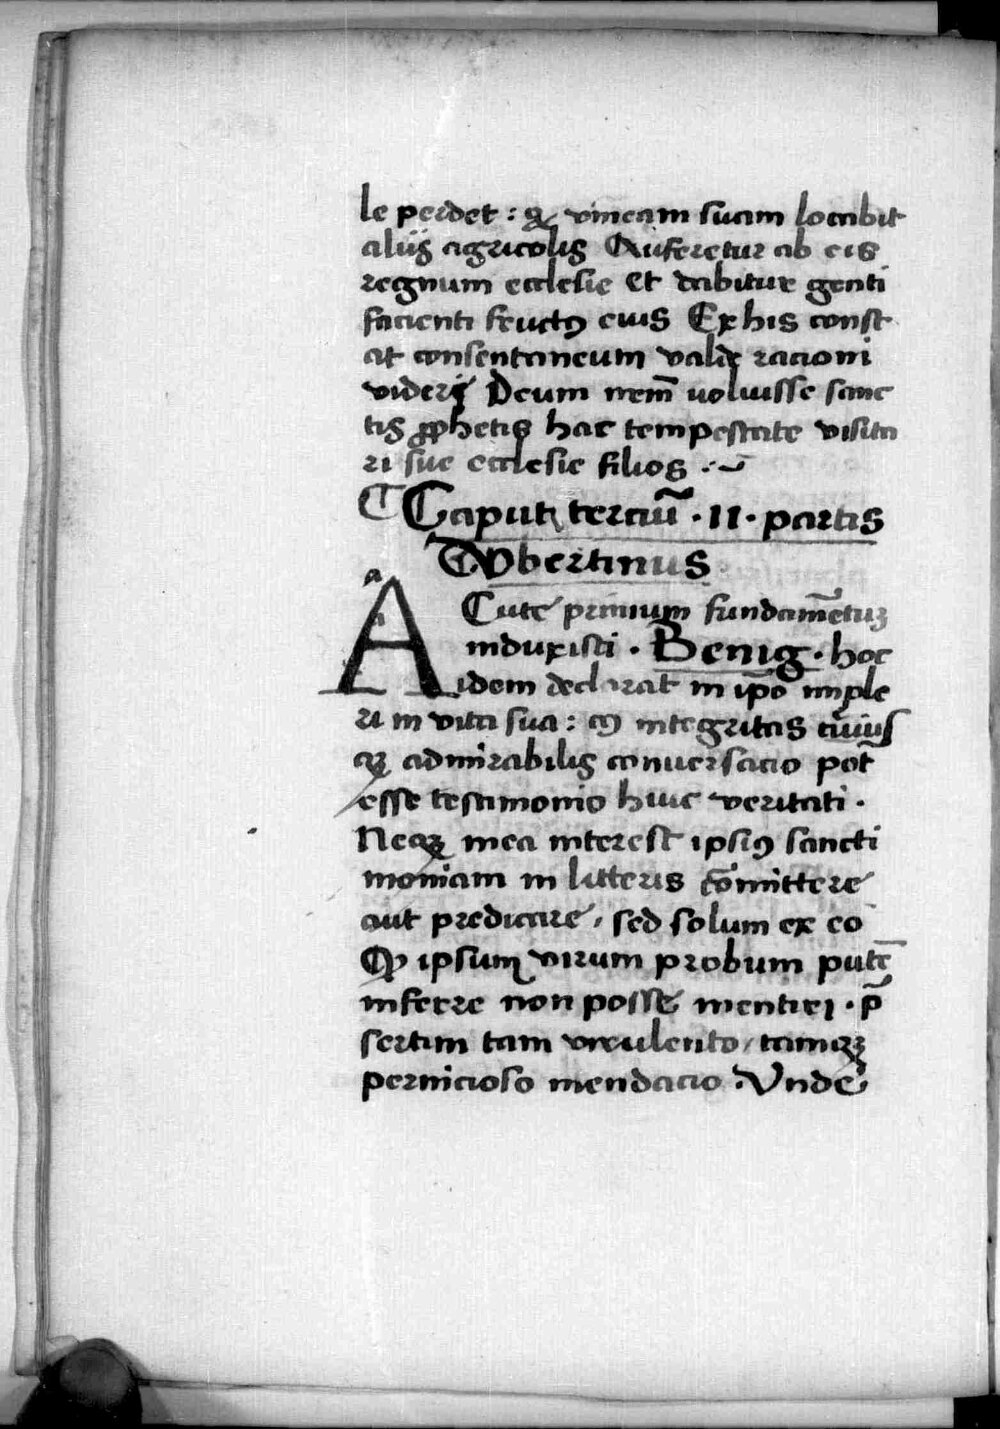 le perdet : qꝫ vineam suam locabit
aliis agricolis Auferetur ab eis
regnum ecclesie et dabitur genti
facienti fructꝰ eius Ex his const
at consentaneum valde racioni
videri Deum nr̄m voluisse sanc
tis ꝓphetis hac tempestate visita
ri sue ecclesie filios .~
Caput terciū · II · partis
Ubertinus
Acute primum fundamētuꝫ
induxisti · Benig · hoc
idem declarat in ip̄o imple
ri in vita sua : cꝰ integritas cuius
qꝫ admirabilis conversacio pot̄
esse testimonio huic veritati ·
Neqꝫ mea interest ipsiꝰ sancti
moniam in litteris cōmittere
aut predicare , sed solum ex eo
ꝙ ipsum virum probum putē
inferre non posse mentiri · p̄
sertim tam / tamqꝫ
pernicioso mendacio . Unde